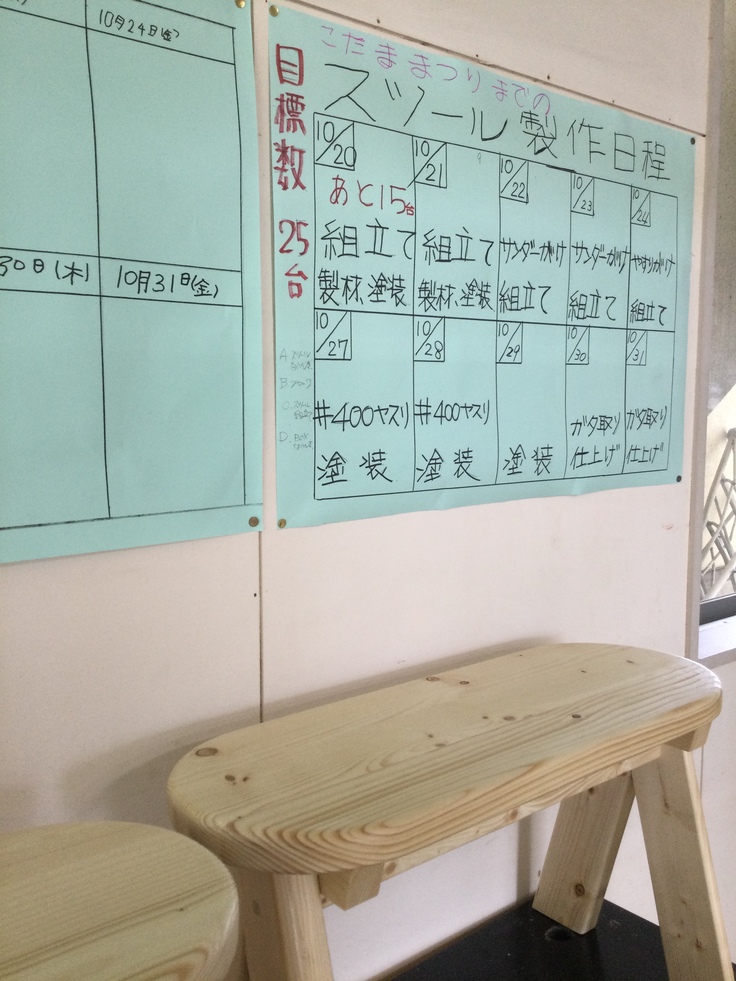 10月24日(金)
30日(木)
10月31日(金)
こだままつりまでの
スツール製作日程
目標数 25台
10/20
あと15台
組立て
製材、塗装
10/21
組立て
製材、塗装
10/22
サンダーがけ
組立て
10/23
サンダーがけ
組立て
10/24
やすりがけ
組立て
10/27
#400ヤスリ
塗装
10/28
#400ヤスリ
塗装
10/29
塗装
10/30
ガタ取り
仕上げ
10/31
ガタ取り
仕上げ
A
B
C
D. BOX